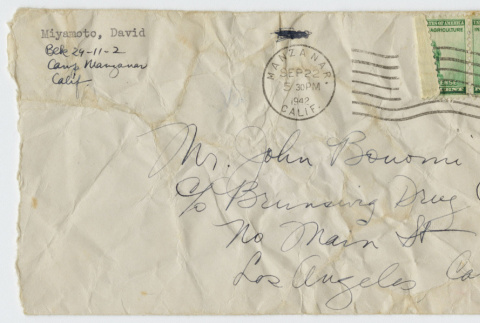 Miyamoto, David
Blk 24-11-2
Camp Manzanar
Calif.
MANZANAR
SEP 22
5 30PM
1942
CALIF.
AGRICULTURE
Mr. John Bonomi
c/o Brunswig Drug
No Main St
Los Angeles Ca